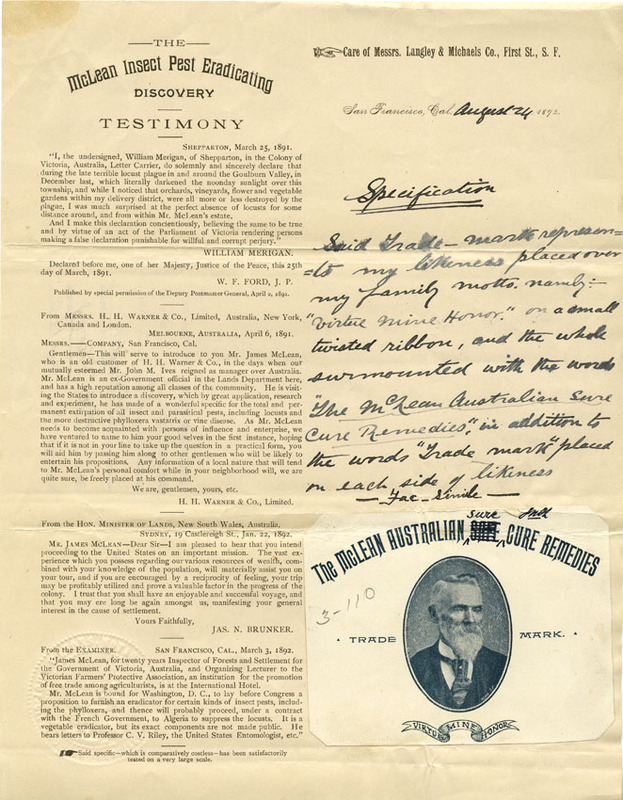 THE
McLean Insect Pest Eradicating
DISCOVERY
TESTIMONY
SHEPPARTON, March 25, 1891.
"I, the undersigned, William Merigan, of Shepparton, in the Colony of
Victoria, Australia, Letter Carrier, do solemnly and sincerely declare that
during the late terrible locust plague in and around the Goulburn Valley, in
December last, which literally darkened the noonday sunlight over this
township, and while I noticed that orchards, vineyards, flower and vegetable
gardens within my delivery district, were all more or less destroyed by the
plague, I was much surprised at the perfect absence of locusts for some
distance around, and from within Mr. McLean's estate.
And I make this declaration conscientiously, believing the same to be true
and by virtue of an act of the Parliament of Victoria rendering persons
making a false declaration punishable for willful and corrupt perjury."
WILLIAM MERIGAN.
Declared before me, one of her Majesty, Justice of the Peace, this 25th
day of March, 1891.
W. F. FORD, J. P.
Published by special permission of the Deputy Postmaster General, April 2, 1891.
From MESSRS. H. H. WARNER & CO., Limited, Australia, New York,
Canada and London.
MELBOURNE, AUSTRALIA, April 6, 1891.
MESSRS. —— COMPANY, San Francisco, Cal.
Gentlemen—This will serve to introduce to you Mr. James McLean,
who is an old customer of H. H. Warner & Co., in the days when our
mutually esteemed Mr. John M. Ives reigned as manager over Australia.
Mr. McLean is an ex-Government official in the Lands Department here,
and has a high reputation among all classes of the community. He is visit-
ing the States to introduce a discovery, which by great application, research
and experience, he has made of a wonderful specific for the total and per-
manent extirpation of all insect and parasitical pests, including locusts and
the more destructive phylloxera vastatrix or vine disease. As Mr. McLean
needs to become acquainted with persons of influence and enterprise, we
have ventured to name to him your good selves in the first instance, hoping
that if it is not in your line to take up the question in a practical form, you
will aid him by passing him along to other gentlemen who will be likely to
entertain his propositions. Any information of a local nature that will tend
to Mr. McLean's personal comfort while in your neighborhood will, we are
quite sure, be freely placed at his command.
We are, gentlemen, yours, etc.
H. H. WARNER & CO., Limited.
From the HON. MINISTER OF LANDS, New South Wales, Australia.
SYDNEY, 19 Castlereigh St., Jan. 22, 1892.
MR. JAMES MCLEAN—Dear Sir—I am pleased to hear that you intend
proceeding to the United States on an important mission. The vast ex-
perience which you possess regarding our various resources of wealth, com-
bined with your knowledge of the population, will materially assist you on
your tour, and if you are encouraged by a reciprocity of feeling, your trip
may be profitably utilized and prove a valuable factor in the progress of the
colony. I trust that you shall have an enjoyable and successful voyage, and
that you may ere long be again amongst us, manifesting your general
interest in the cause of settlement.
Yours Faithfully,
JAS. N. BRUNKER.
From the EXAMINER. SAN FRANCISCO, CAL., March 3, 1892.
"James McLean, for twenty years Inspector of Forests and Settlement for
the Government of Victoria, Australia, and Organizing Lecturer to the
Victorian Farmers' Protective Association, an institution for the promotion
of free trade among agriculturists, is at the International Hotel.
Mr. McLean is bound for Washington, D. C., to lay before Congress a
proposition to furnish an eradicator for certain kinds of insect pests, includ-
ing the phylloxera, and thence will probably proceed, under a contract
with the French Government, to Algeria to suppress the locusts. It is a
vegetable eradicator, but its exact components are not made public. He
bears letters to Professor C. V. Riley, the United States Entomologist, etc."
Said specific—which is comparatively costless—has been satisfactorily
tested on a very large scale.
Care of Messrs. Langley & Michaels Co., First St., S. F.
San Francisco, Cal. August 24 1892.
Specification
Said Trade-mark represen=
=ts my likeness placed over
my family motto. namely:-
"Virtue Mine Honor." on a small
twisted ribbon, and the whole
surmounted with the words
"The McLean Australian Sure
Cure Remedies", in addition to
the words "Trade mark" placed
on each side of likeness
—Fac-Simile—
sure
The McLEAN AUSTRALIAN CURE REMEDIES
3-110
TRADE MARK.
VIRTUE MINE HONOR